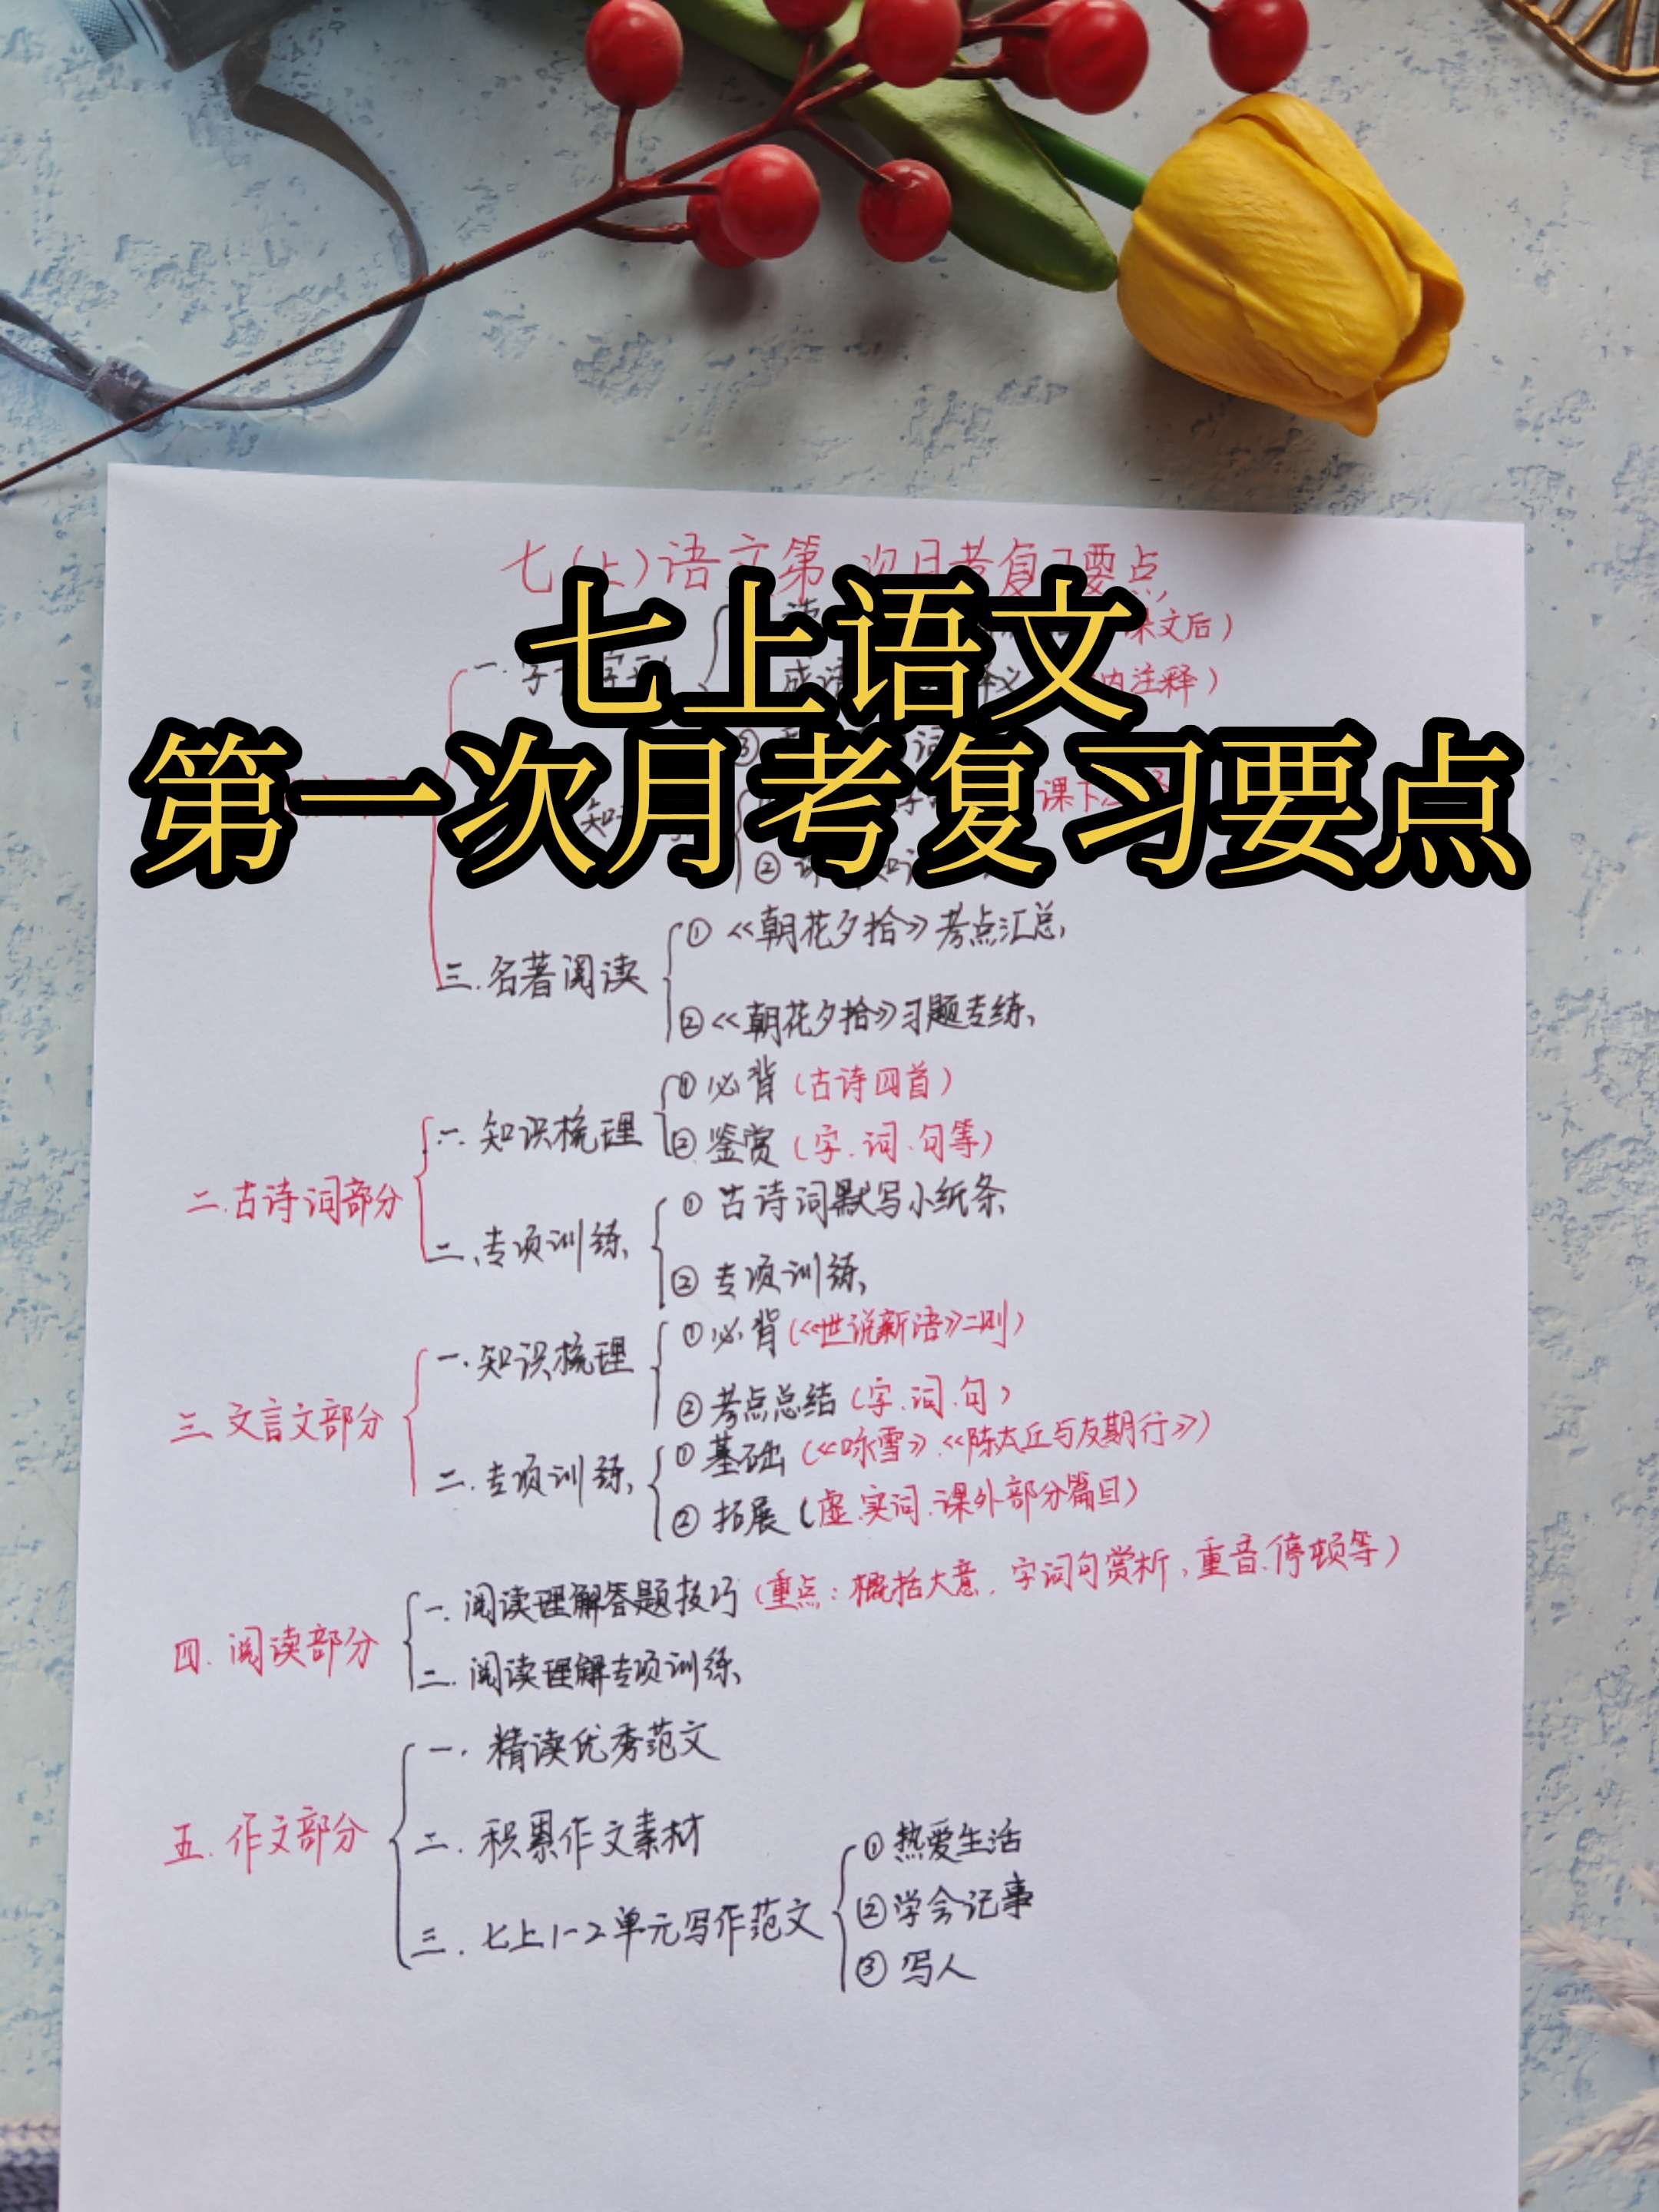 七(上)语文第 次月考复习要点
七上语文
第一次月考复习要点
课文后)
成语
内注释)
③
知
课下
②
三.名著阅读
①《朝花夕拾》考点汇总
②《朝花夕拾》习题专练
二.古诗词部分
一.知识梳理
①必背(古诗四首)
②鉴赏(字.词.句等)
二、专项训练
①古诗词默写小纸条
②专项训练
三.文言文部分
一.知识梳理
①必背(《世说新语》二则)
②考点总结(字.词.句)
二.专项训练
①基础(《咏雪》.《陈太丘与友期行》)
②拓展(虚.实词.课外部分篇目)
四.阅读部分
一.阅读理解答题技巧(重点:概括大意.字词句赏析,重音.停顿等)
二.阅读理解专项训练
五.作文部分
一.精读优秀范文
二.积累作文素材
三.七上1-2单元写作范文
①热爱生活
②学会记事
③写人